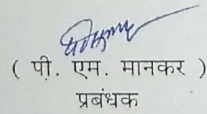 ( पी. एम. मानकर )
प्रबंधक